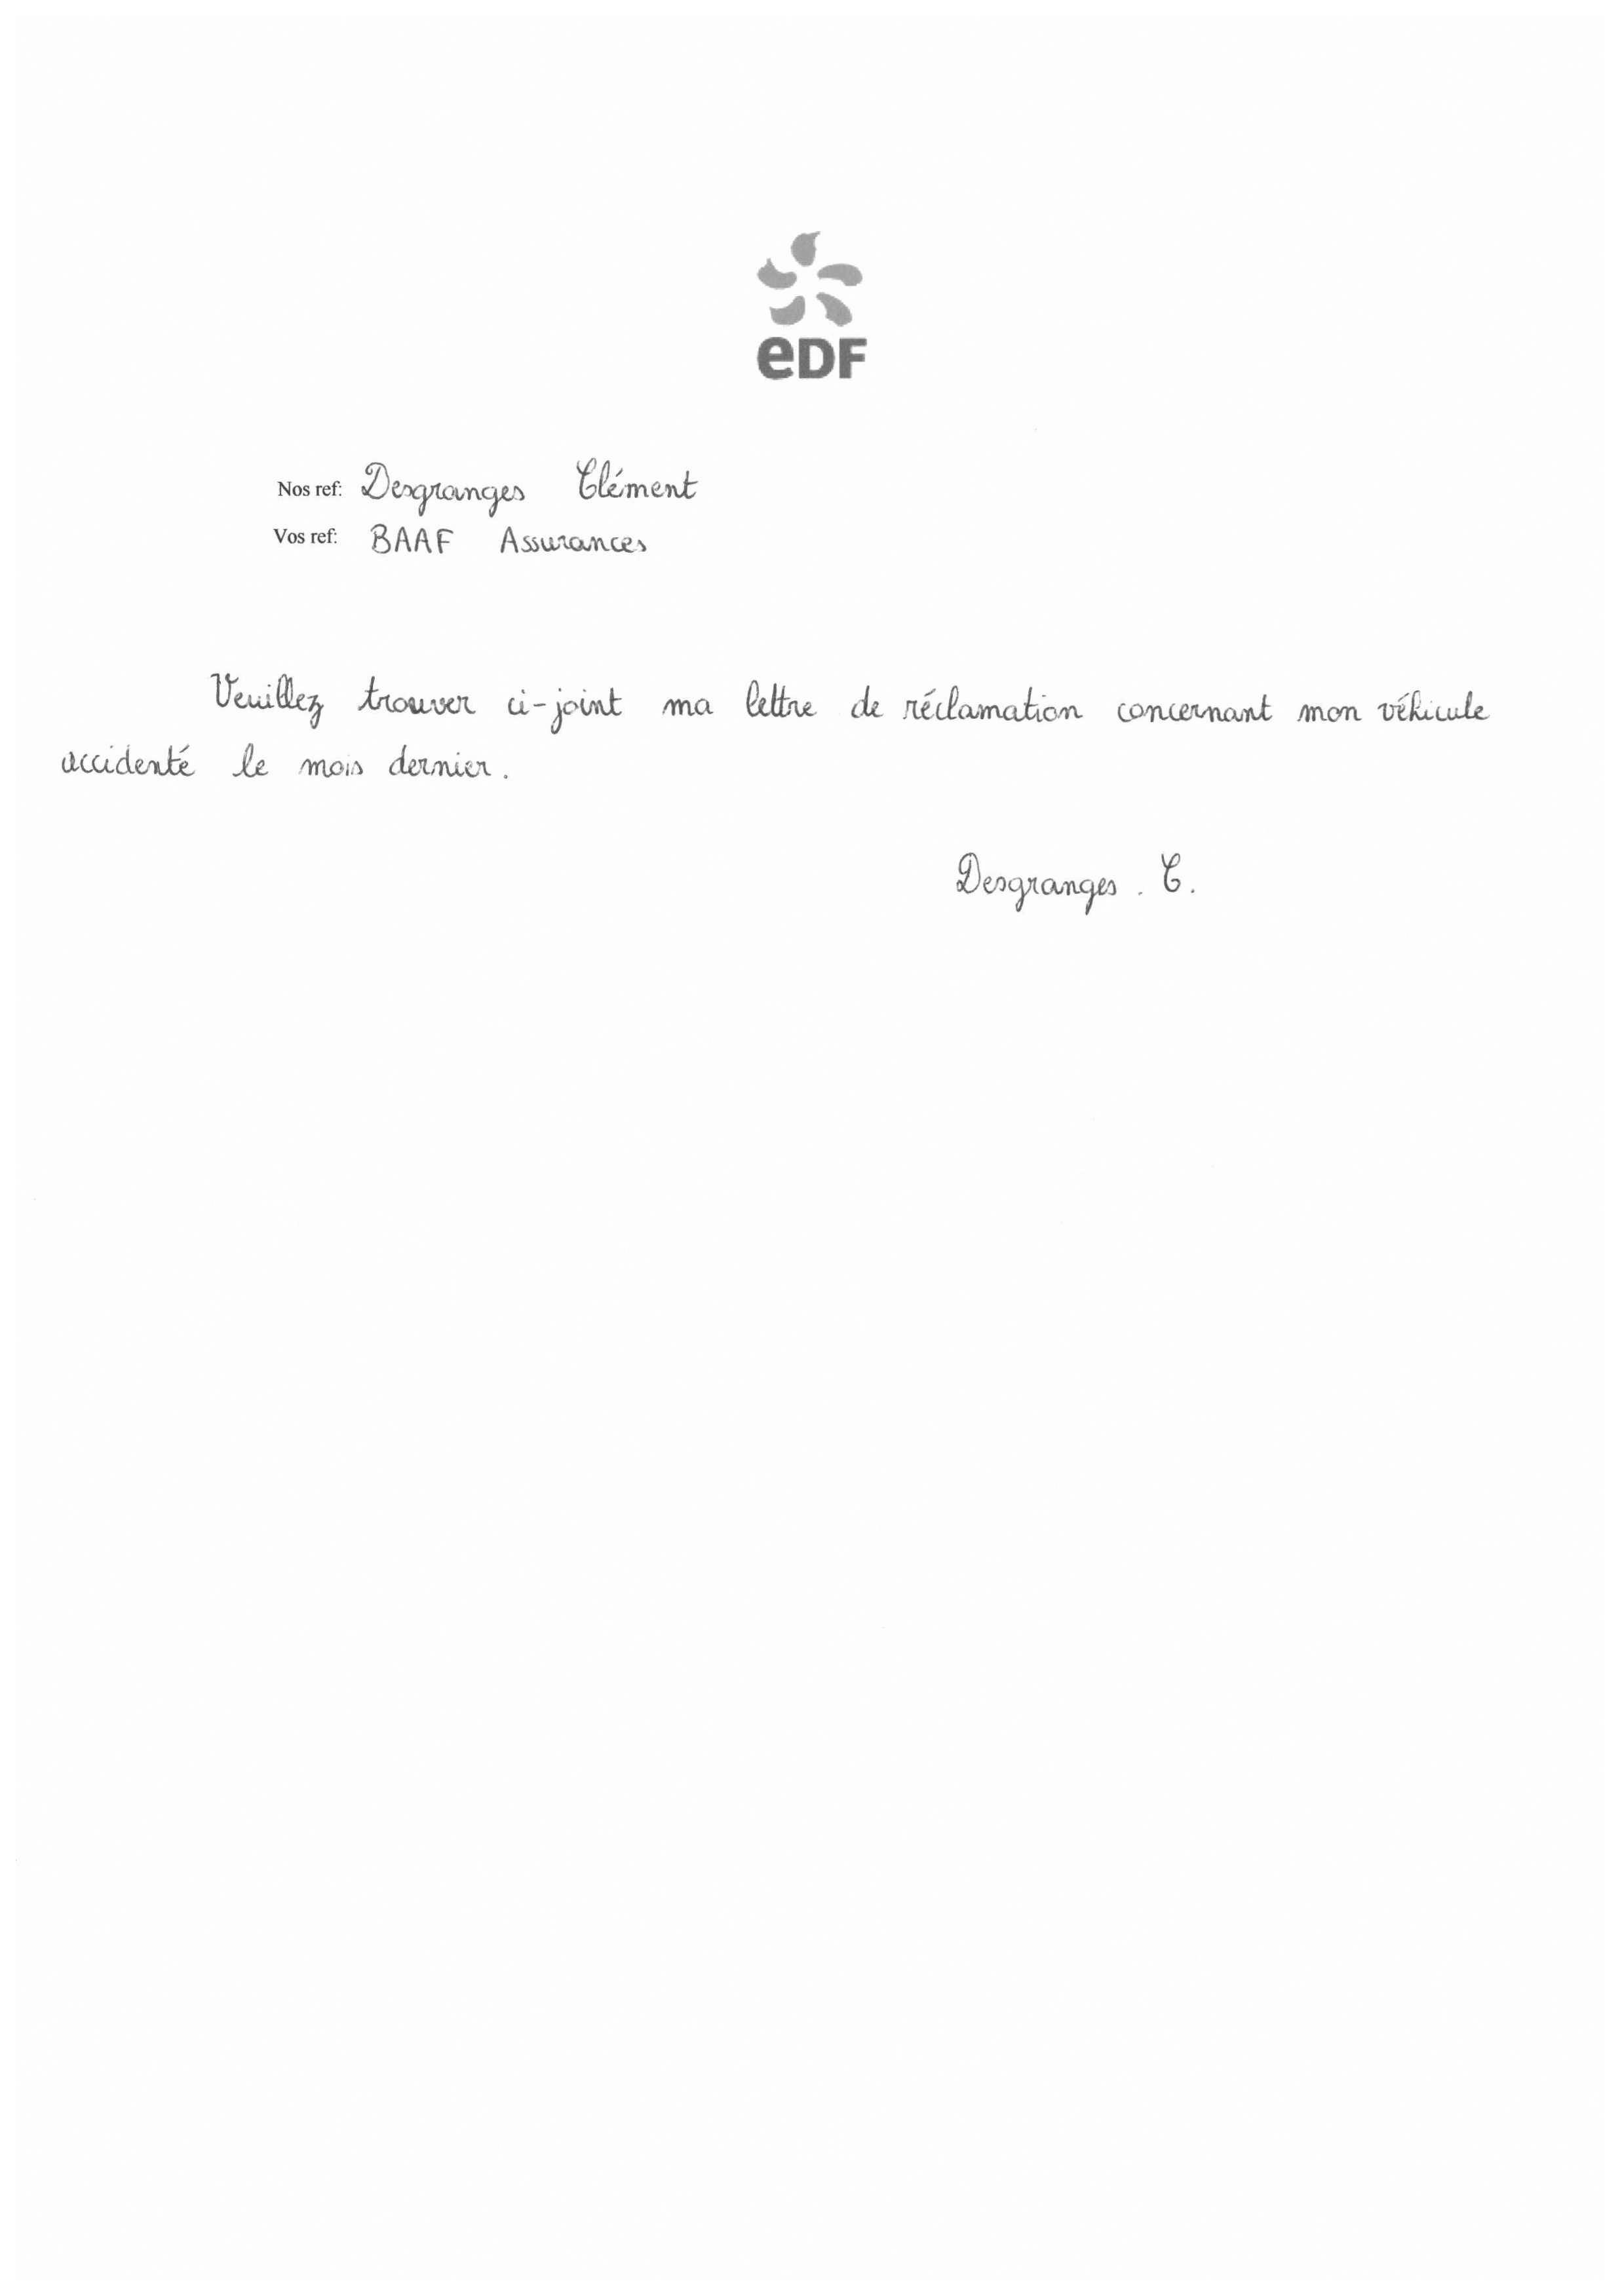 eDF
Nos ref: Desgranges Clément
Vos ref: BAAF Assurances
Veuillez trouver ci-joint ma lettre de réclamation concernant mon véhicule
accidenté le mois dernier.
Desgranges . C.